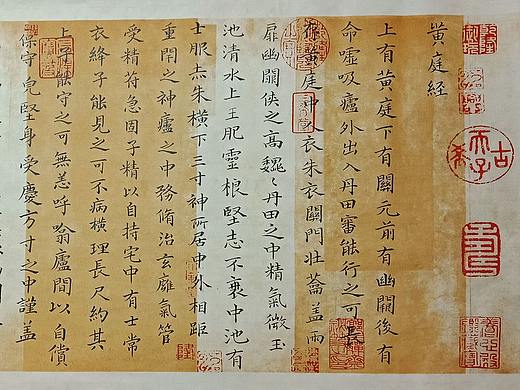 黃庭經
上有黃庭下有關元前有幽闕後有
命噓吸廬外出入丹田審能行之可長
存黃庭中人衣朱衣關門壯蘥蓋兩
扉幽闕俠之高魏〻丹田之中精氣微玉
池清水上生肥靈根堅志不衰中池有
士服赤朱橫下三寸神所居中外相距
重閇之神廬之中務脩治玄膺氣管
受精符急固子精以自持宅中有士常
衣絳子能見之可不病橫理長尺約其
上子能守之可無恙呼噏廬間以自償
保守完堅身受慶方寸之中謹蓋
古希天子